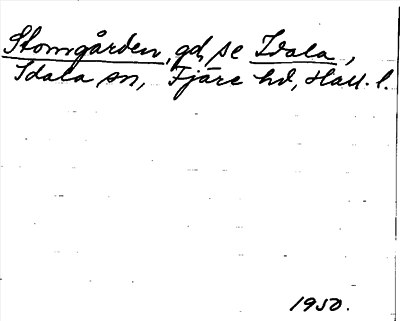 Stomgården, gd, se Idala,
Idala sn, Fjäre hd, Hall. l.
1950.